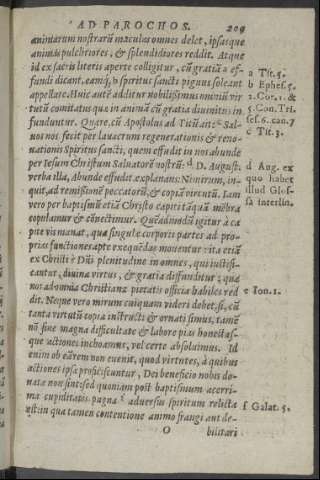 AD PAROCHOS. 209
animarum nostrarũ maculas omnes delet, ipsasque
animas pulchriores, & splendidiores reddit. Atque
id ex sacris literis aperte colligitur, cũ gratiã a ef-
fundi dicant, eamq́; b spiritus sancti pignus soleant
appellare. Huic autẽ additur nobilissimus omniũ vir
tutũ comitatus quæ in animã cũ gratia diuinitus in
funduntur. Quare, cũ Apostolus ad Titũ ait: c Sal-
uos nos fecit per lauacrum regenerationis & reno-
uationis Spiritus sancti, quem effudit in nos abunde
per Iesum Christum Saluatorẽ nostrũ: d D. August.
verba illa, Abunde effudit, explanans: Nimirum, in-
quit, ad remissionẽ peccatorũ, & copiã virtutũ. Iam
vero per baptismũ etiã Christo capiti tãquã mẽbra
copulamur & cõnectimur. Quẽadmodũ igitur à ca
pite vis manat, qua singulæ corporis partes ad pro-
prias functiones apte exequẽdas mouentur: ita etiã
ex Christi e Dñi plenitudine in omnes, qui iustifi-
cantur, diuina virtus, & gratia diffunditur; quæ
nos ad omnia Christianæ pietatis officia habiles red
dit. Neque vero mirum cuiquam videri debet, si, cũ
tanta virtutũ copia instructi & ornati simus, tamẽ
nõ sine magna difficultate & labore pias honestas-
que actiones inchoamus, vel certe absoluimus. Id
enim ob eãrem non euenit, quod virtutes, à quibus
actiones ipsæ proficiscuntur, Dei beneficio nobis do-
natæ non sint: sed quoniam post baptismum acerri-
ma cupiditatis pugna f aduersus spiritum relicta
est: in qua tamen contentione animo frangi aut de-
O bilitari
a Tit. 3.
b Ephes. 5.
2. Cor. 1. &
5. Con. Tri.
ses. 6. can. 7
c Tit. 3.
d Aug. ex
quo habet
illud Glos-
sa interlin.
e Ion. 1.
f Galat. 5.